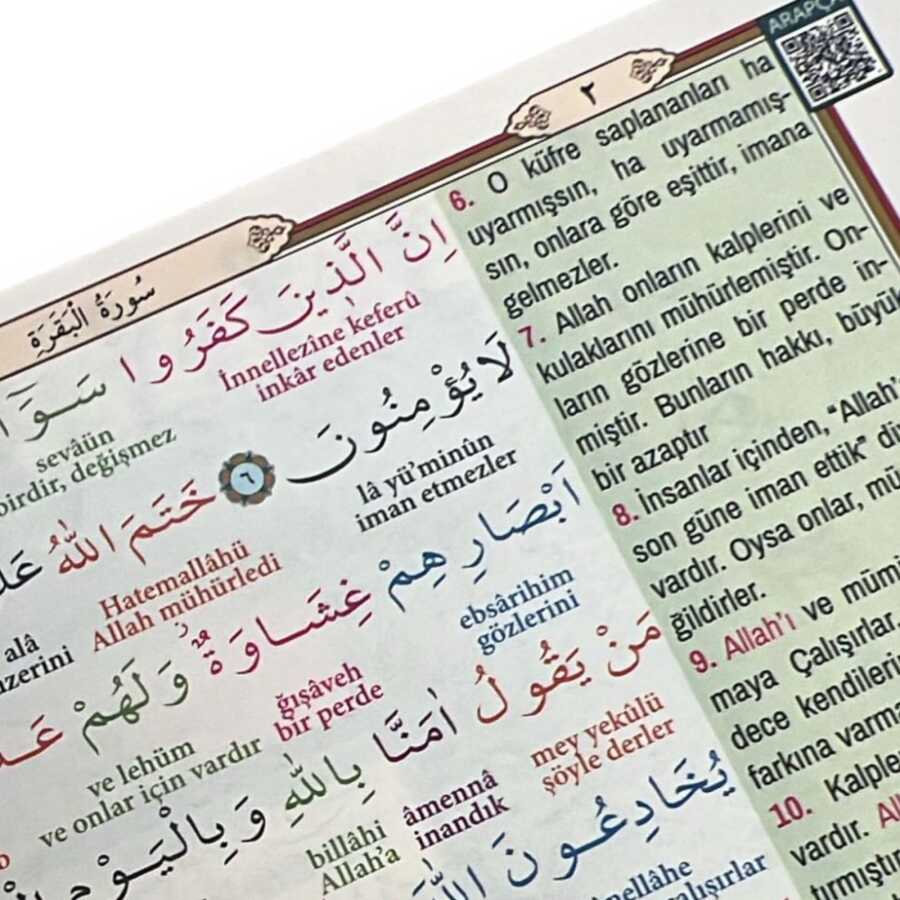 ARAPÇA
٢
سُورَةُ الْبَقَرَةِ
اِنَّ الَّذ۪ينَ كَفَرُوا سَوَٓا
İnnellezîne keferû
inkâr edenler
sevâün
birdir, değişmez
لَا يُؤْمِنُونَ ٦ خَتَمَ اللّٰهُ
lâ yü'minûn
iman etmezler
Hatemallâhü
Allah mühürledi
alâ
üzerini
اَبْصَارِهِمْ غِشَاوَةٌ وَلَهُمْ
ebsârihim
gözlerini
ğışâveh
bir perde
ve lehüm
ve onlar için vardır
مَنْ يَقُولُ اٰمَنَّا بِاللّٰهِ وَبِالْيَوْمِ
mey yekûlü
şöyle derler
âmennâ
inandık
billâhi
Allah'a
يُخَادِعُونَ اللّٰهَ
6. O küfre saplananları ha
uyarmışsın, ha uyarmamış-
sın, onlara göre eşittir, imana
gelmezler.
7. Allah onların kalplerini ve
kulaklarını mühürlemiştir. On-
ların gözlerine bir perde in-
miştir. Bunların hakkı, büyük
bir azaptır
8. İnsanlar içinden, “Allah'
son güne iman ettik” di
vardır. Oysa onlar, mü
ğildirler.
9. Allah'ı ve mümi
maya Çalışırlar.
dece kendilerin
farkına varma
10. Kalple
vardır. Al
tırmıştır